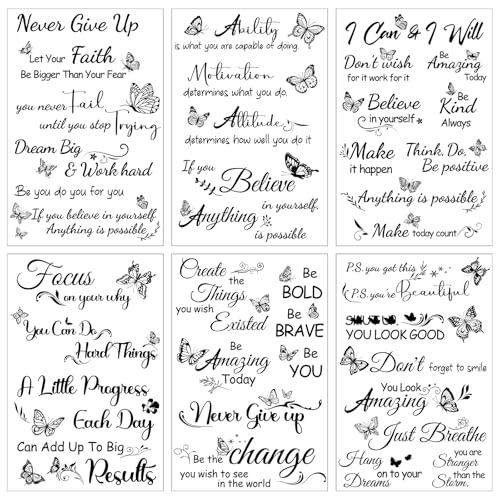 Never Give Up
Let Your Faith
Be Bigger Than Your Fear
you never Fail
until you stop Trying
Dream Big
& Work hard
Be you do you for you
If you believe in yourself,
Anything is possible
Ability
is what you are capable of doing.
Motivation
determines what you do.
Attitude
determines how well you do it
If you
Believe
in yourself,
Anything
is possible
I Can & I Will
Don't wish
for it work for it
Be
Amazing
Today
Believe
in yourself
Be
Kind
Always
Make
it happen
Think, Do,
Be positive
Anything is possible
Make today count
Focus
on your why
You Can Do
Hard Things
A Little Progress
Each Day
Can Add Up To Big
Results
Create
the
Things
you wish
Existed
Be
BOLD
Be
BRAVE
Be
YOU
Be
Amazing
Today
Never Give up
Be the change
you wish to see
in the world
P.S. you got this
P.S. you're Beautiful
YOU LOOK GOOD
Don't forget to smile
You Look
Amazing
Just Breathe
Hang
on to your
Dreams
you are
Stronger
than the
Storm.